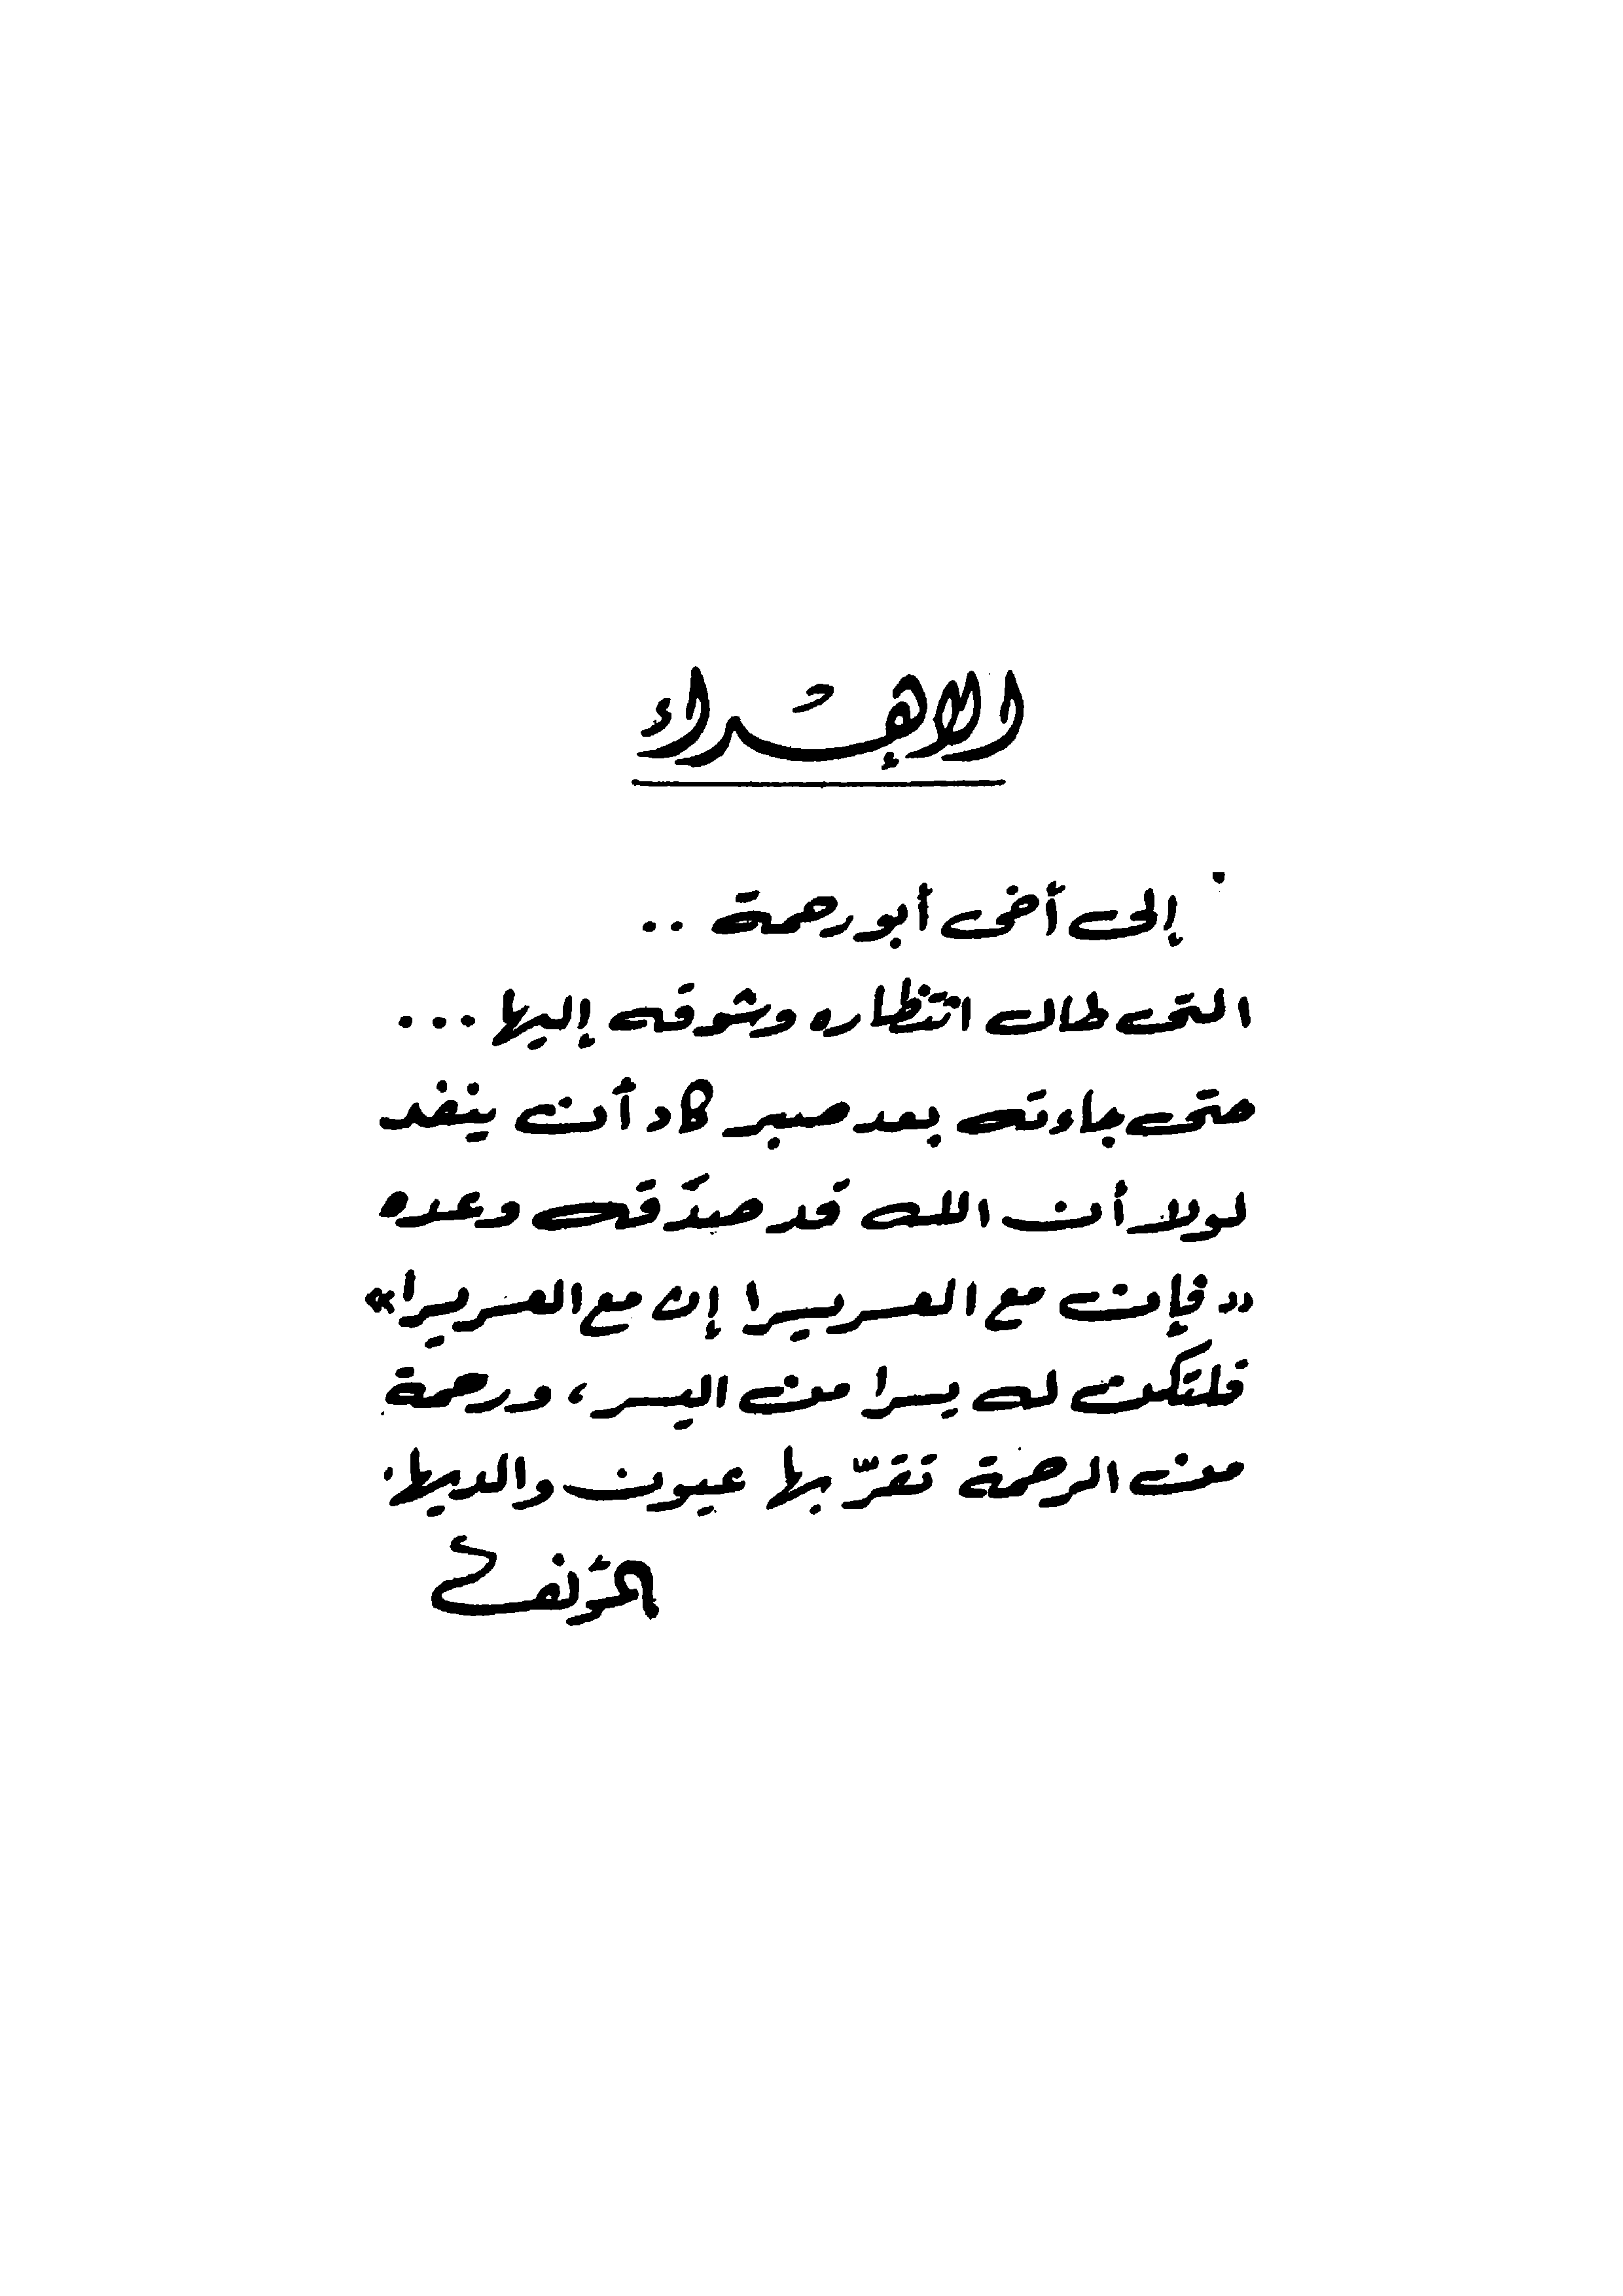 الإهداء
إلى أخى أبو رحمة ..
التى طال انتظاره وشوقه إليها ...
حتى جاءته بعد صبر كاد أن ينفد
لولا أن الله قد صدَقه وعده
«فإن مع العسر يسرا إن مع العسر يسرا»
فلتكن له يسرا من اليسر، ورحمة
من الرحمة تقرّ بها عيون والديها.
المؤلف